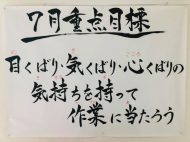 7月重点目標
目くばり・気くばり・心くばりの
気持ちを持って
作業に当たろう